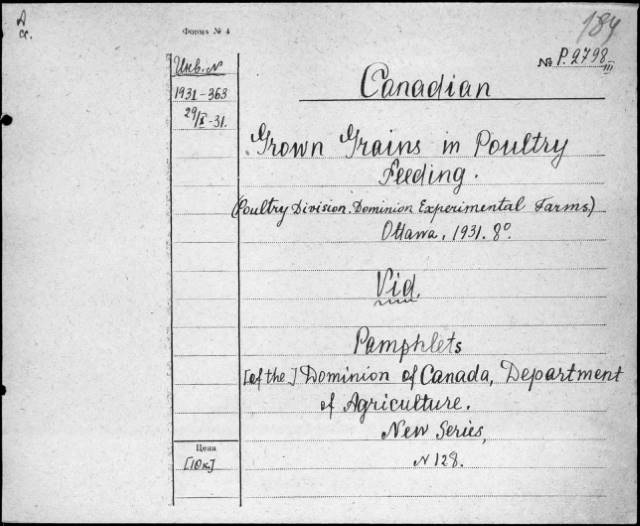 184
Форма № 4
№ P.2798
III
Инв. N
1931-363
29/X-31.
Canadian
Grown Grains in Poultry
Feeding.
(Poultry Division. Dominion Experimental Farms)
Ottawa, 1931. 8°.
Vid.
Pamphlets
[of the] Dominion of Canada, Department
of Agriculture.
New Series,
N 128.
Цена
[10к.]